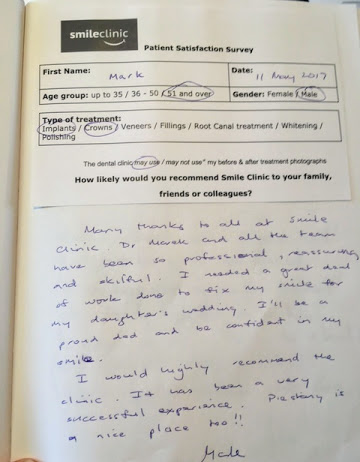 smileclinic
Patient Satisfaction Survey
First Name: Mark Date: 11 May 2017
Age group: up to 35 / 36 - 50 / 51 and over Gender: Female / Male
Type of treatment:
Implants / Crowns / Veneers / Fillings / Root Canal treatment / Whitening /
Polishing
The dental clinic may use / may not use" my before & after treatment photographs
How likely would you recommend Smile Clinic to your family,
friends or colleagues?
Many thanks to all at Smile
Clinic. Dr Marek and all the team
have been so professional, reassuring
and skilful. I needed a great deal
of work done to fix my smile for
my daughter's wedding. I'll be a
proud dad and be confident in my
smile.
I would highly recommend the
clinic. It has been a very
successful experience. Piestany is
a nice place too!!
Mark